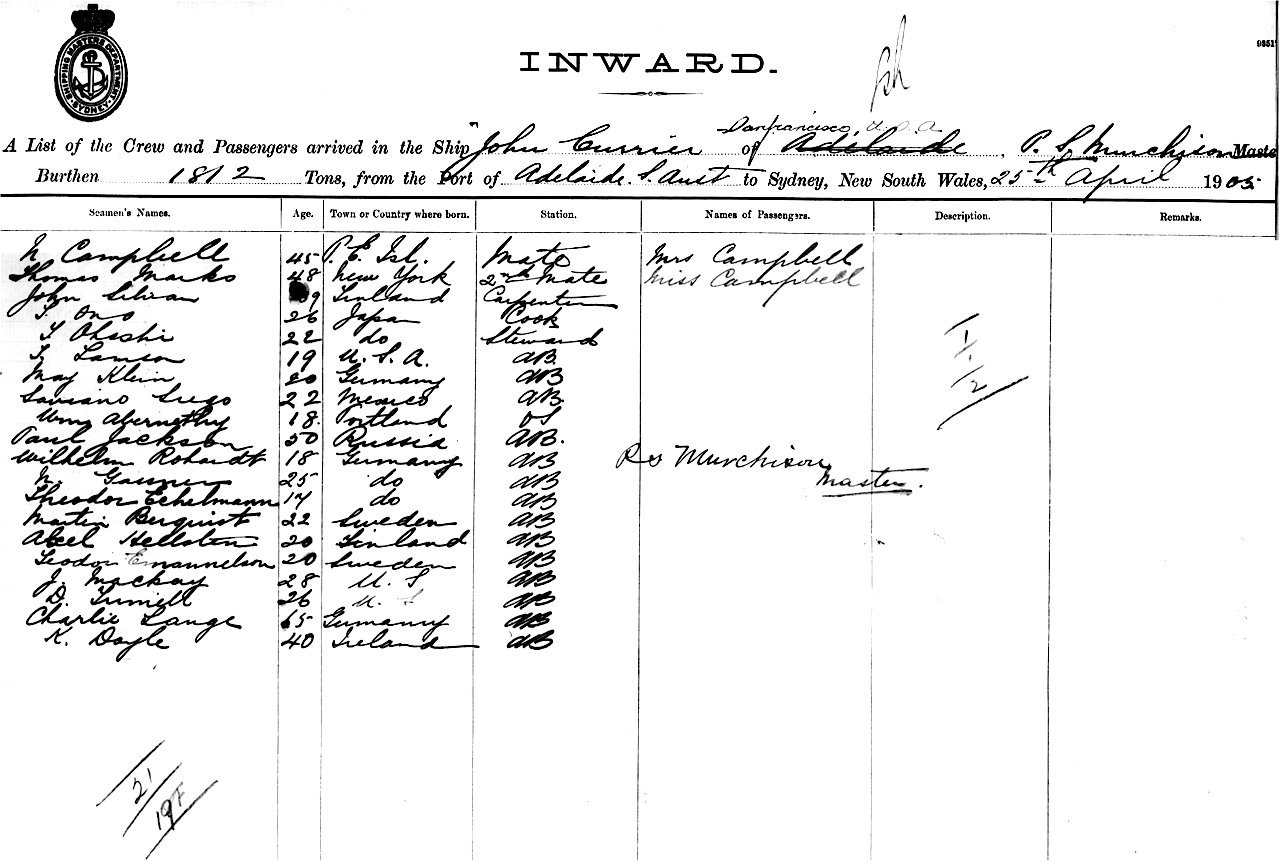 SHIPPING MASTERS DEPARTMENT SYDNEY
INWARD.
Sanfrancisco, U.S.A
A List of the Crew and Passengers arrived in the Ship "John Currier of Adelaide, P. S. Murchison Maste
Burthen 1812 Tons, from the Port of Adelaide. S. Aust to Sydney, New South Wales, 25th April 1905
Seamen's Names. Age. Town or Country where born. Station. Names of Passengers. Description. Remarks.
N Campbell 45 P. E. Isl. Mate Mrs Campbell
Thomas Marks 48 New York 2nd Mate Miss Campbell
John Finland Carpenter
Ono 26 Japan Cook
Ohashi 22 do Steward
Lamson 19 U. S. A. AB.
May Klein 20 Germany AB
Lugo 22 Mexico AB.
Wm Abernethy 18. Portland OS
Paul Jackson 50 Russia AB.
Wilhelm Rohardt 18 Germany AB R S Murchison
N. 25 do AB Master.
Theodor Echelmann 17 do AB
Martin Berquist 22 Sweden AB
Axel Hellsten 20 Finland AB
Emannelson 20 Sweden AB
J. Mackay 28 U. S AB
D. 26 U. S AB
Charlie Lange 65 Germany AB
K. Doyle 40 Ireland AB
1
1.
12
21
19